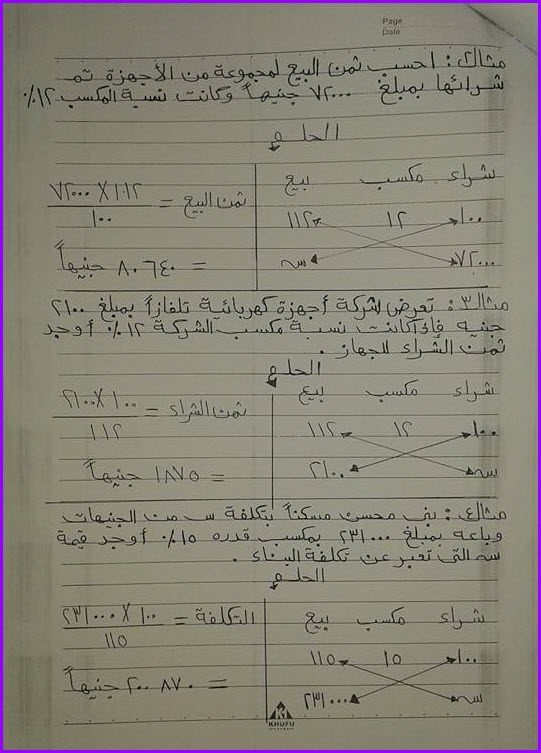 Page
Date
مثال٢: احسب ثمن البيع لمجموعة من الأجهزة تم
شرائها بمبلغ ٧٢٠٠٠ جنيهاً وكانت نسبة المكسب ١٢٪
الحل
شراء مكسب بيع
١٠٠ ١٢ ١١٢
٧٢٠٠٠ س
ثمن البيع = ٧٢٠٠٠ × ١١٢
١٠٠
= ٨٠٦٤٠ جنيهاً
مثال٣: تعرض شركة أجهزة كهربائية تلفازاً بمبلغ ٢١٠٠
جنيه فإذا كانت نسبة مكسب الشركة ١٢٪ أوجد
ثمن الشراء للجهاز.
الحل
شراء مكسب بيع
١٠٠ ١٢ ١١٢
س ٢١٠٠
ثمن الشراء = ٢١٠٠ × ١٠٠
١١٢
= ١٨٧٥ جنيهاً
مثال٤: بنى محسن مسكناً بتكلفة س من الجنيهات
وباعه بمبلغ ٢٣١٠٠٠ بمكسب قدره ١٥٪ أوجد قيمة
س التى تعبر عن تكلفة البناء.
الحل
شراء مكسب بيع
١٠٠ ١٥ ١١٥
س ٢٣١٠٠٠
التكلفة = ٢٣١٠٠٠ × ١٠٠
١١٥
= ٢٠٠٨٧٠ جنيهاً
KHUFU